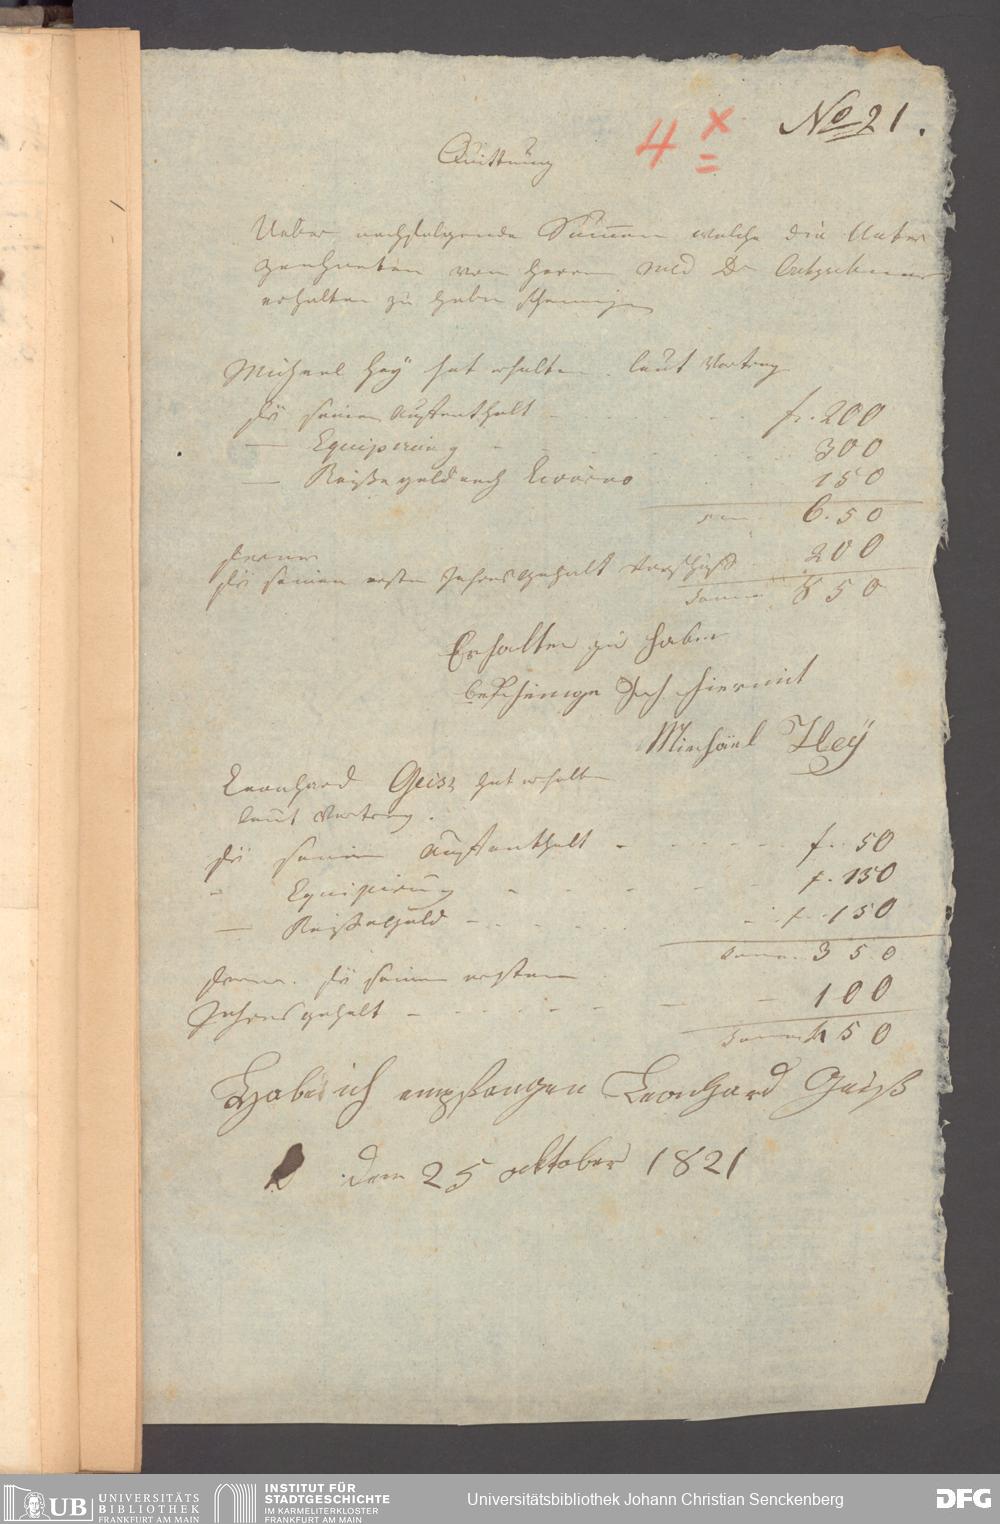 No 21.
4 x =
Quittung
Ueber nachfolgende Summen welche die Unter
zeichneten von Herrn Med Dr Cretzschmar
erhalten zu haben bescheinigen
Michael Hey hat erhalten laut Vertrag
für seinen Aufenthalt - fr. 200
— Equipirung - 300
— Reißegeld nach Livorno 150
6.50
ferner
für seinen ersten Jahresgehalt Vorschuß 200
Summa 850
Erhalten zu haben
bescheinige Ich hiermit
Michäel Heÿ
Leonhard Geisz hat erhalten
laut Vertrag.
für seinen Aufenthalt - f. 50
" Equipirung - f. 150
— Reißegeld - f. 150
Summa. 350
ferner. für seinen ersten
Jahresgehalt - 100
Summa 450
Habe ich empfangen Leonhard Geiß
den 25 oktober 1821
UB UNIVERSITÄTS
BIBLIOTHEK
FRANKFURT AM MAIN
INSTITUT FÜR
STADTGESCHICHTE
IM KARMELITERKLOSTER
FRANKFURT AM MAIN
Universitätsbibliothek Johann Christian Senckenberg
DFG